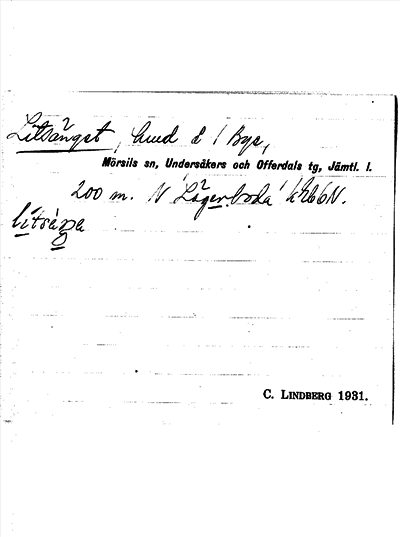 Litsängst, hmd å / Bye,
Mörsils sn, Undersåkers och Offerdals tg, Jämtl. l.
200 m. N Lägerboda
lítsàŋa
C. LINDBERG 1931.